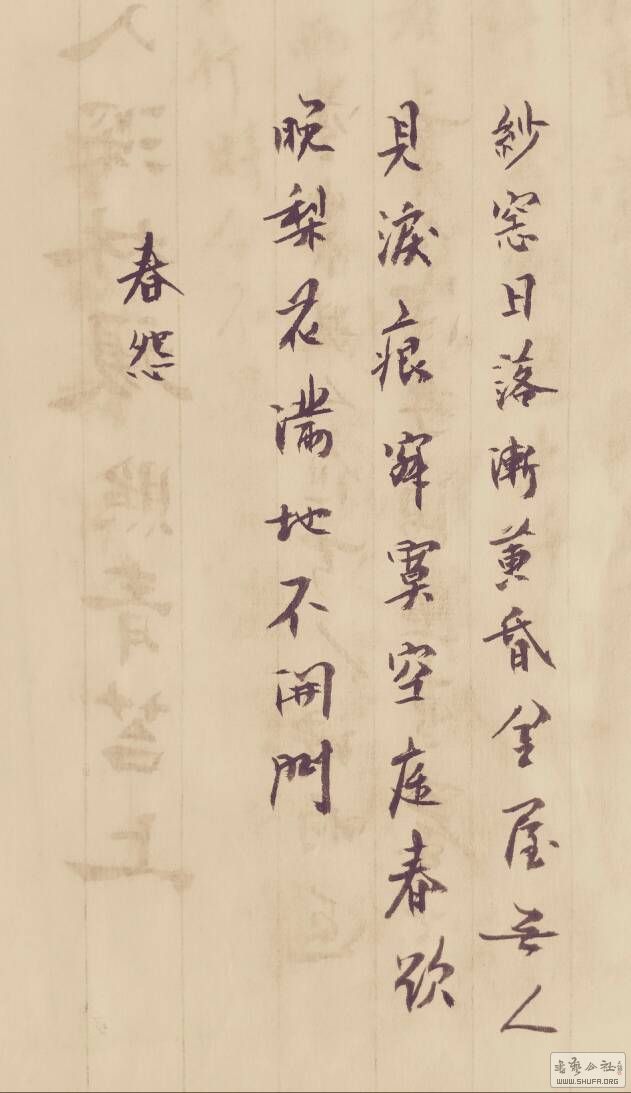 紗窓日落漸黄昏金屋無人
見淚痕寂寞空庭春欲
晚梨花滿地不開門
春怨
人深林復照青苔上
书艺公社
WWW.SHUFA.ORG